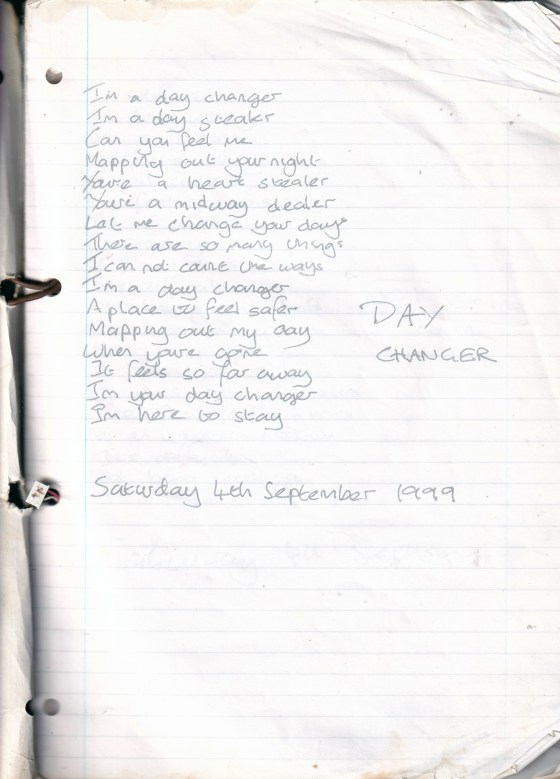 I'm a day changer
I'm a day stealer
Can you feel me
Mapping out your night
You're a heart stealer
You're a midway dealer
Let me change your days
There are so many things
I can not count the ways
I'm a day changer
A place to feel safer
Mapping out my day
When you're gone
It feels so far away
I'm your day changer
I'm here to stay
DAY
CHANGER
Saturday 4th September 1999